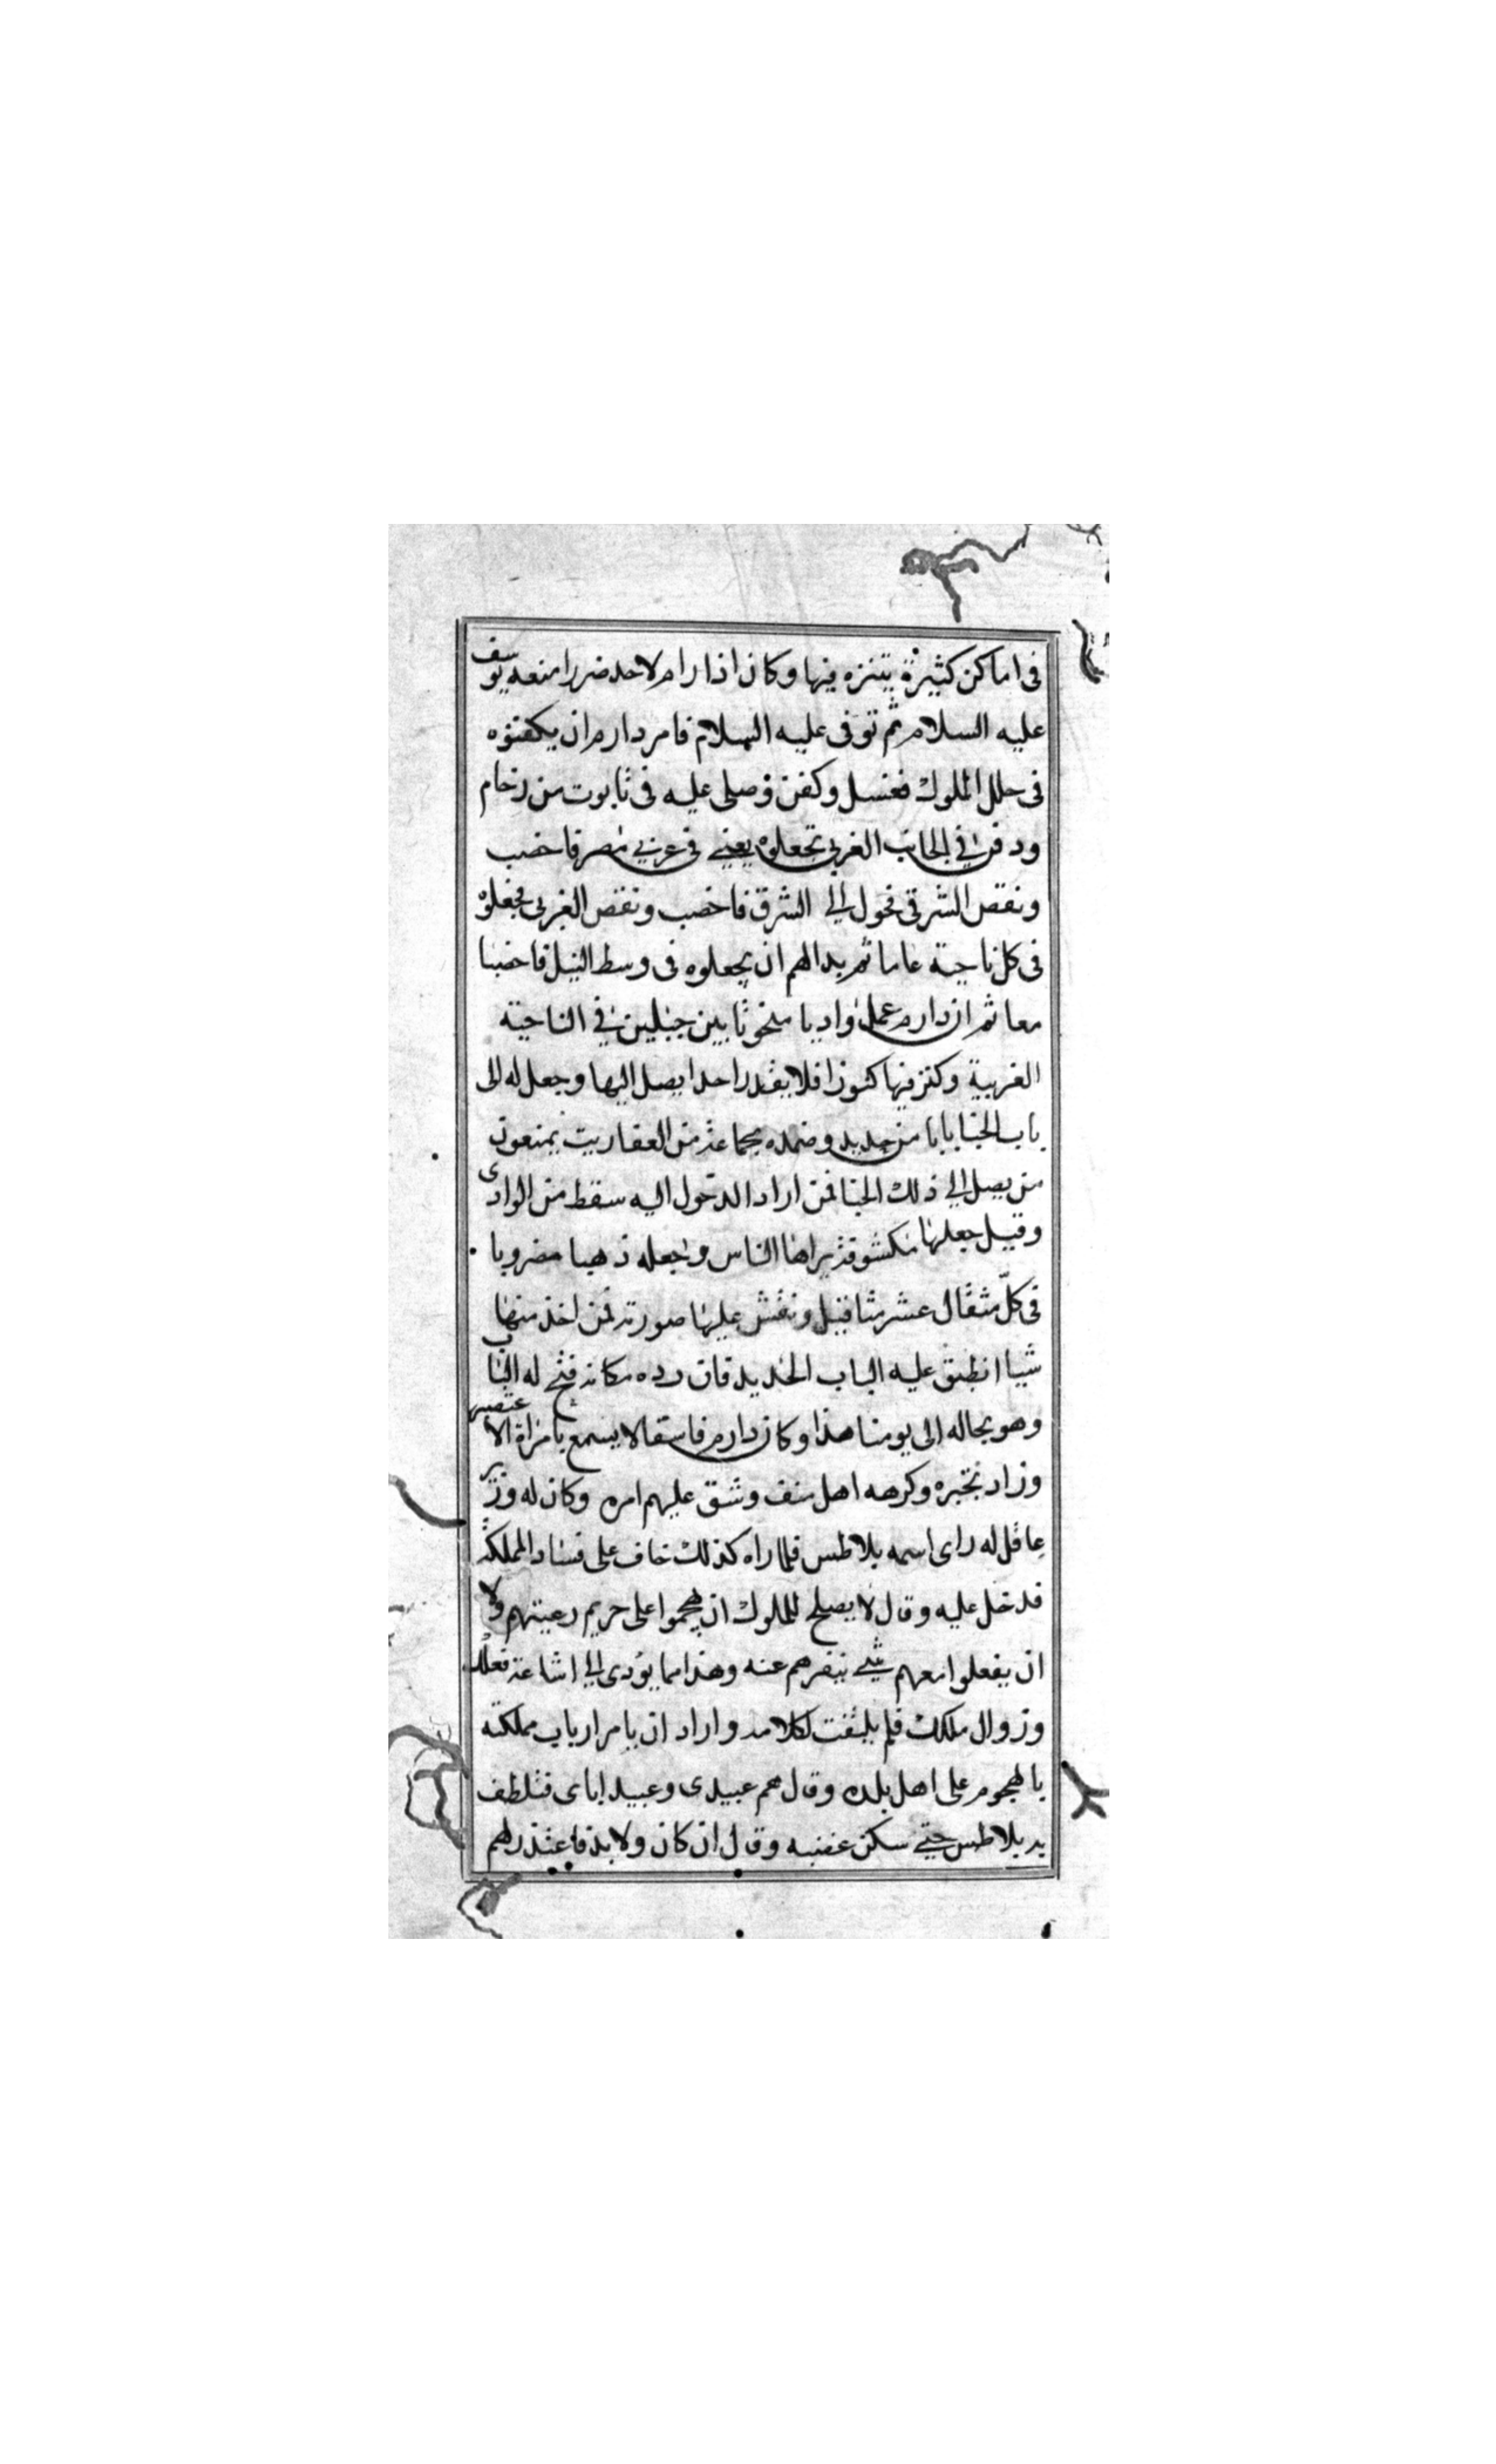 فى اماكن كثيرة يتنزه فيها وكان اذا رام لاحد ضررا منعه يوسف
عليه السلام ثم توفى عليه السلام فامر دارم ان يكفنوه
فى حلل الملوك فغسل وكفن وصلى عليه فى تابوت من رخام
ودفن في الجانب الغربى تجعلوه يعني فى غربي مصر فاخصب
ونقص الشرقى فحول الي الشرق فاخصب ونقص الغربى فجعلوه
فى كل ناحية عاما ثم بدالهم ان يجعلوه فى وسط النيل فاخصبا
معا ثم ان دارم عمل واديا منحوتا بين جبلين في الناحية
الغربية وكنز فيها كنوزا فلا يقدر احدا يصل اليها وجعل له الى
باب الجنا بابا من حديد وضمده بجماعة من العفاريت يمنعون
من يصل الي ذلك الجنا فمن اراد الدخول اليه سقط من الوادى
وقيل جعلها مكشوفة يراها الناس وجعله ذهبا مضروبا
فى كل مثقال عشر مثاقيل ونقش عليها صورته فمن اخذ منها
شيا انطبق عليه الباب الحديد فان رده مكانه فتح له الباب
وهو بحاله الى يومنا هذا وكان دارم فاسقا لا يسمع بامراة الا غتصبها
وزاد تجبره وكرهه اهل منف وشق عليهم امره وكان له وزير
عاقل له راى اسمه بلاطس فلما راه كذلك خاف على فساد المملكة
فدخل عليه وقال لا يصلح للملوك ان يهجموا على حريم رعيتهم ولا
ان يفعلوا معهم شي ينفرهم عنه وهذا مما يؤدى الي اشاعة فعلك
وزوال ملكك فلم يلتفت لكلامه واراد ان يامر ارباب مملكته
بالهجوم على اهل بلده وقال هم عبيدى وعبيد اباى فتلطف
به بلاطس حتي سكن غضبه وقال ان كان ولا بد فاعتذر لهم